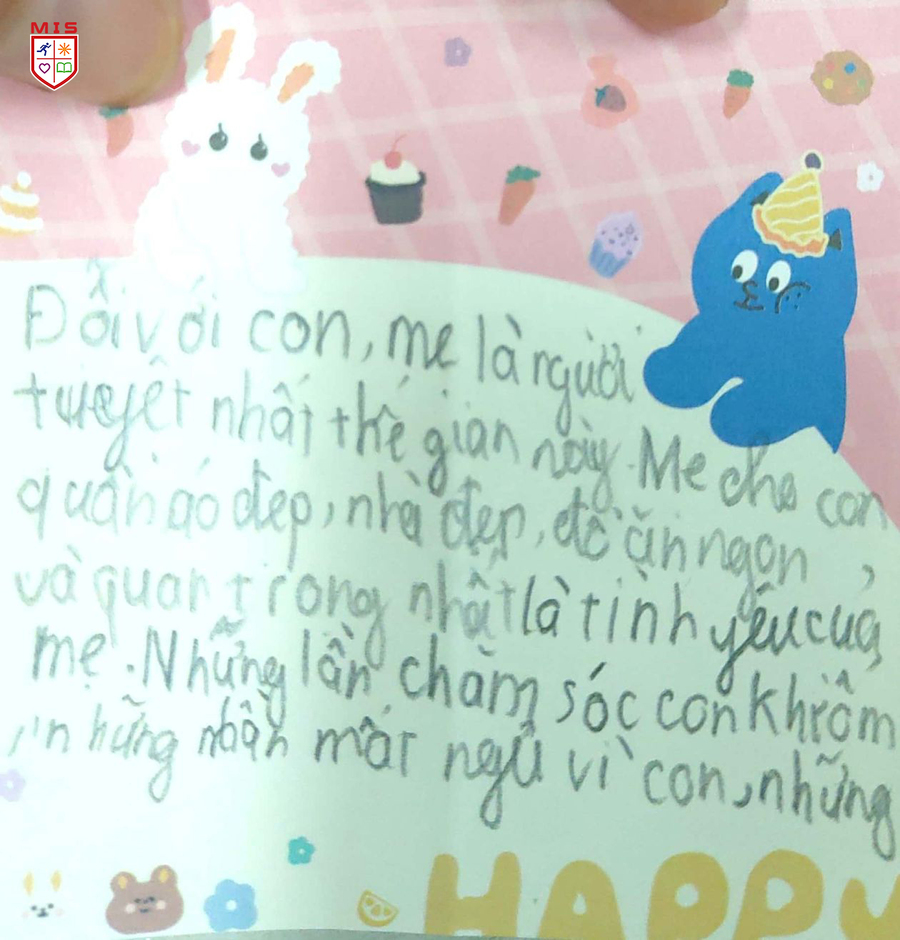 MIS
Đối với con, mẹ là người
tuyệt nhất thế gian này. Mẹ cho con
quần áo đẹp, nhà đẹp, đồ ăn ngon,
và quan trong nhất là tình yêu của
mẹ. Những lần chăm sóc con khi ốm
, những lần mất ngủ vì con, những
HAPPY